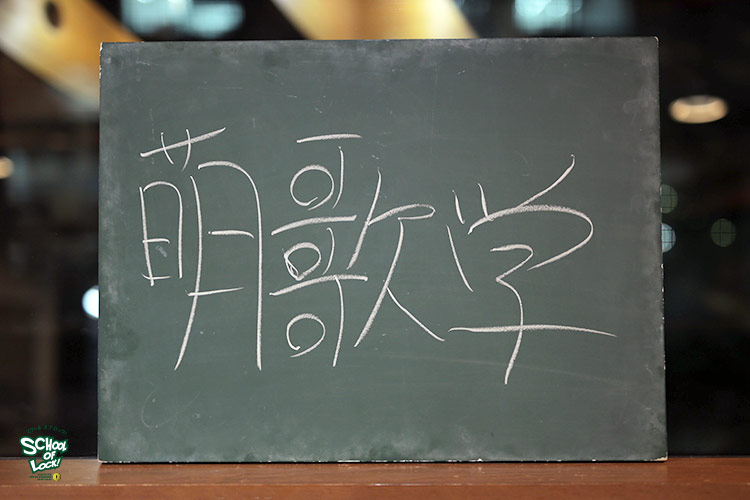 萌歌学
SCHOOL
OF
LOCK!